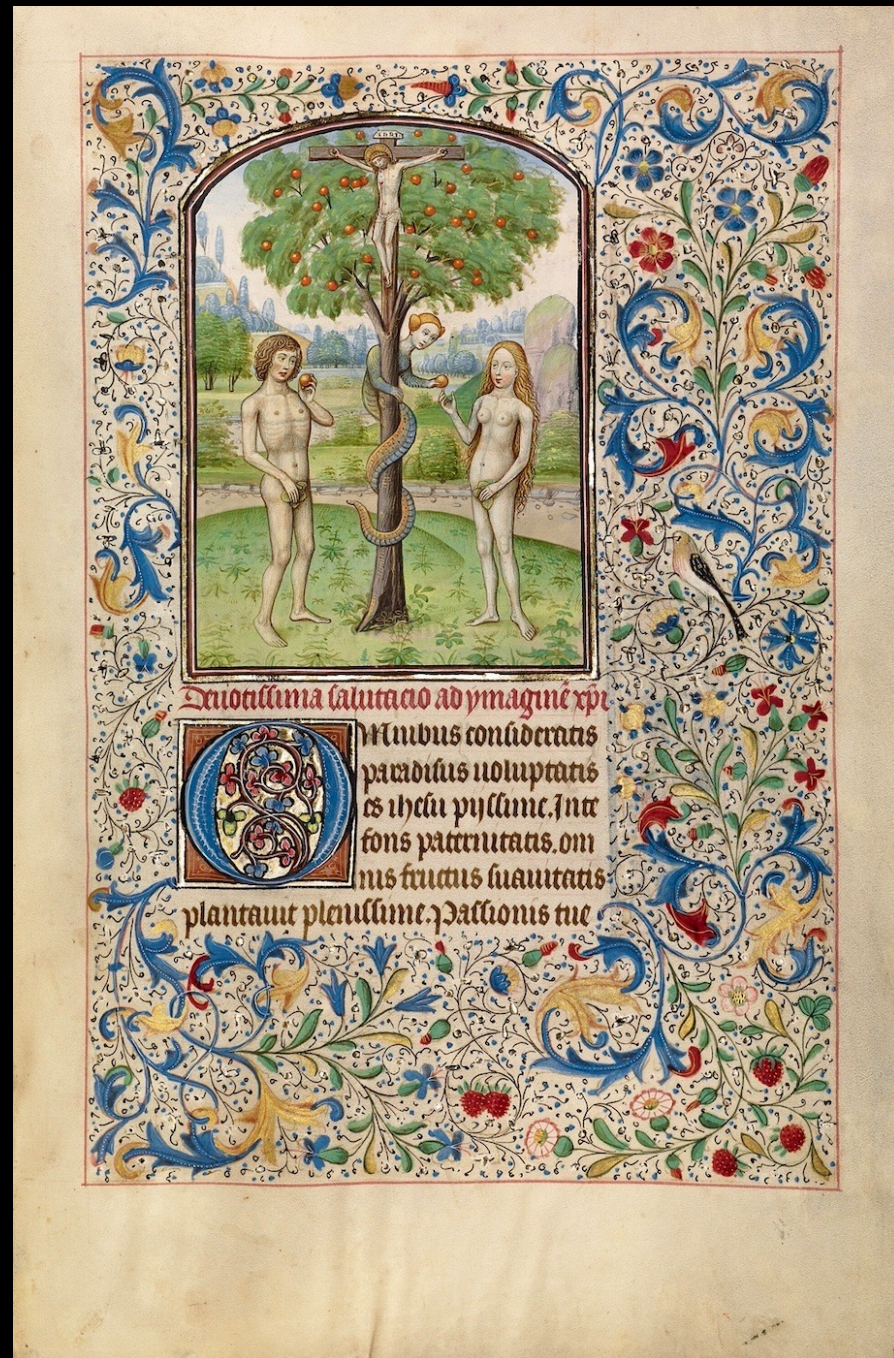 INRI
Deuotissima salutacio ad ymaginē xp̄i
OMnibus consideratis
paradisus uoluptatis
es ihesu pyssime. In te
fons paternitatis. om
nis fructus suauitatis
plantauit plenissime. Passionis tue